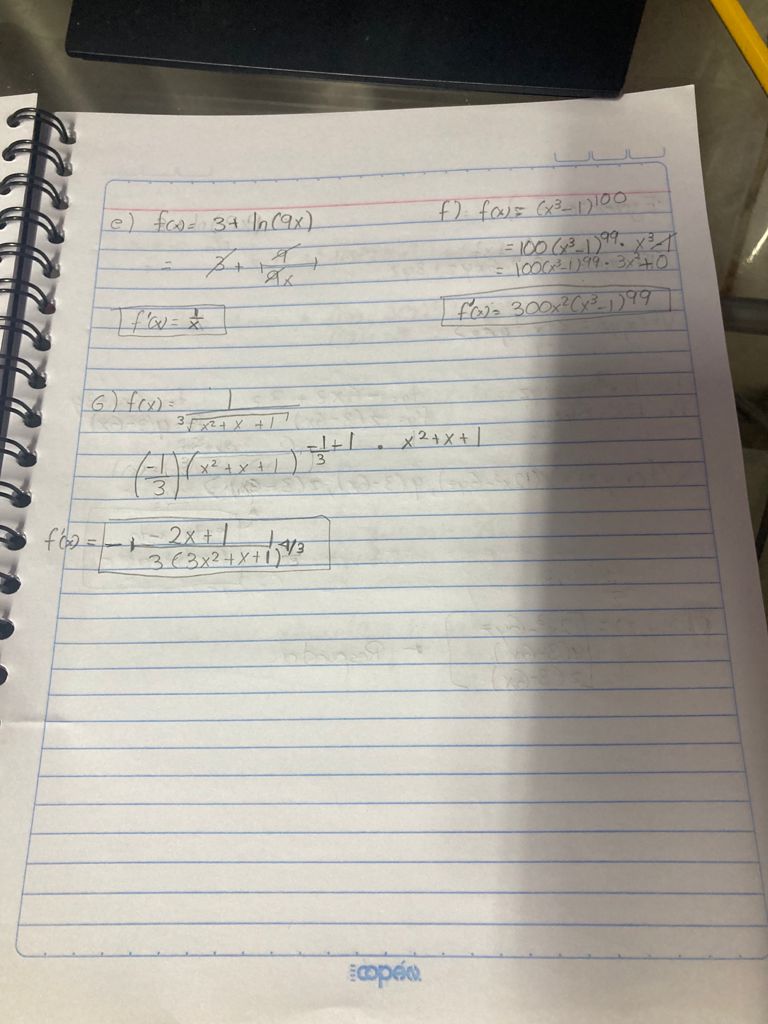 e) f(x) = 3 + ln(9x)
= 3 + 9/9x
f'(x) = 1/x
f) f(x) = (x³-1)¹⁰⁰
= 100(x³-1)⁹⁹ · x³-1
= 100(x³-1)⁹⁹ · 3x²+0
f'(x) = 300x²(x³-1)⁹⁹
G) f(x) = 1/³√x²+x+1
(-1/3)(x²+x+1)^-1/3+1 · x²+x+1
f'(x) = - 2x+1/3(3x²+x+1)^4/3